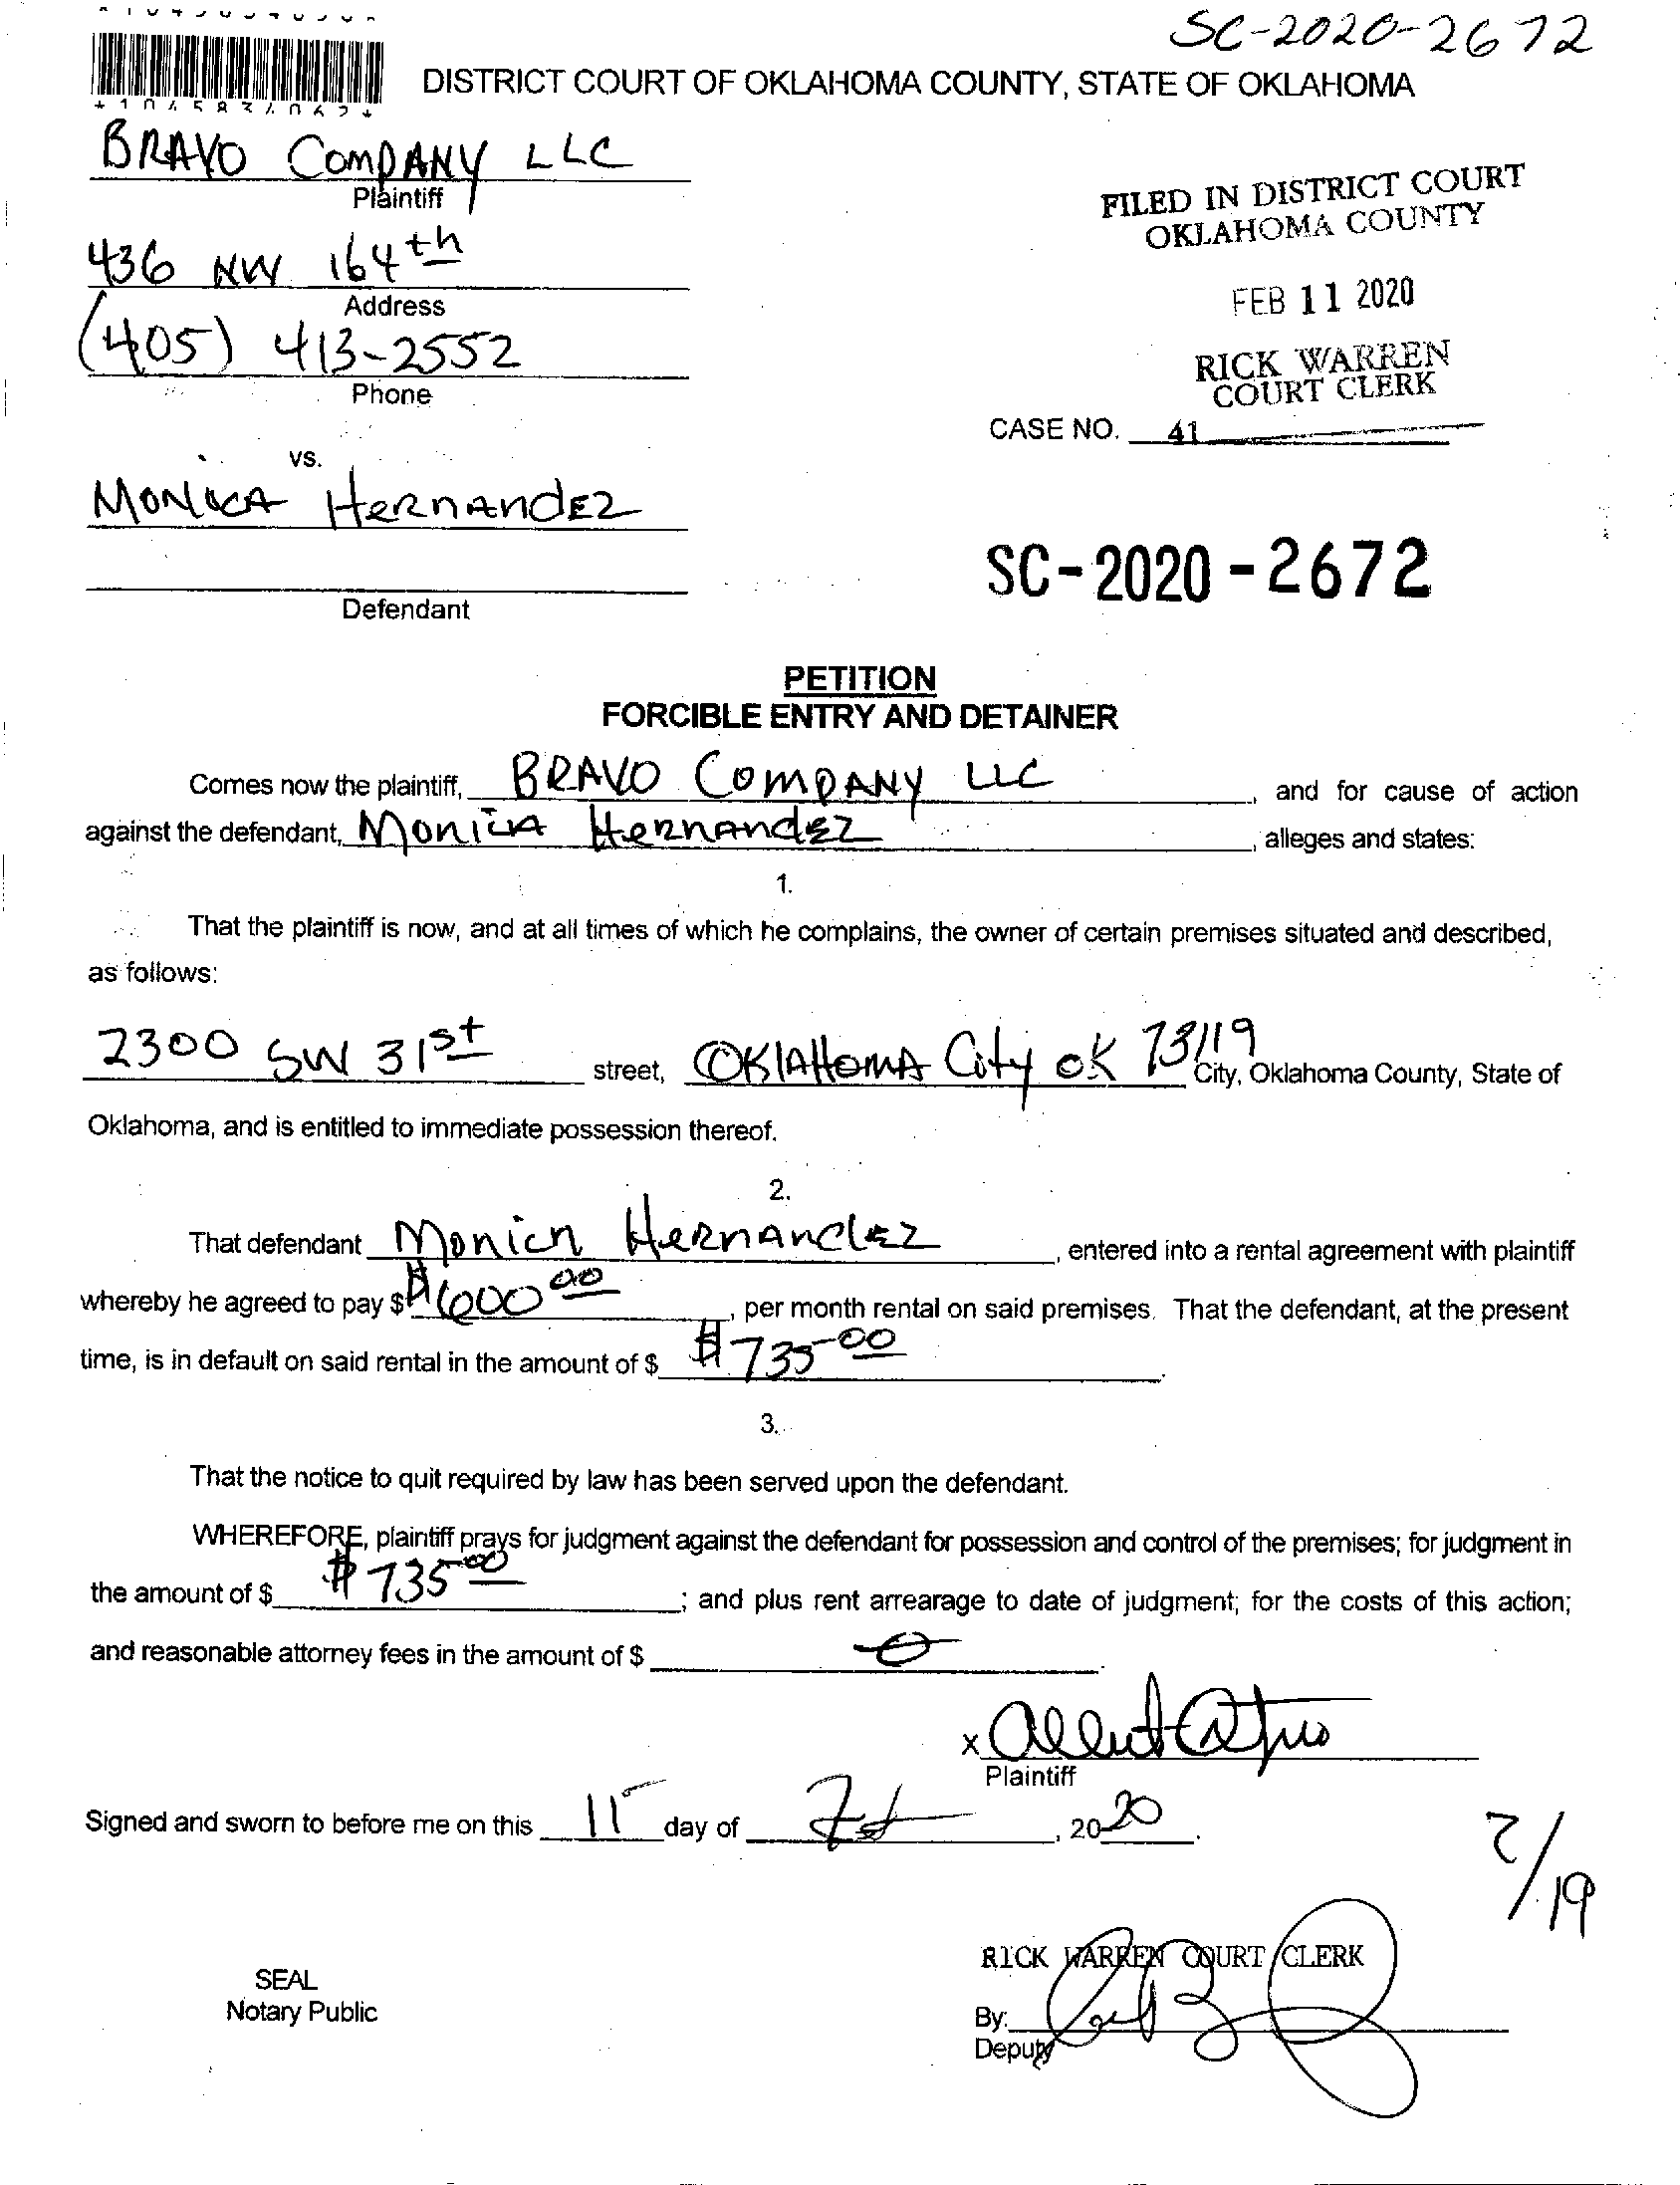 SC-2020-2672
DISTRICT COURT OF OKLAHOMA COUNTY, STATE OF OKLAHOMA
BRAVO COMPANY LLC
Plaintiff
FILED IN DISTRICT COURT
OKLAHOMA COUNTY
436 NW 164th
Address
FEB 11 2020
(405) 413-2552
Phone
RICK WARREN
COURT CLERK
CASE NO. 41
vs.
MONICA HERNANDEZ
SC-2020-2672
Defendant
PETITION
FORCIBLE ENTRY AND DETAINER
Comes now the plaintiff, BRAVO COMPANY LLC, and for cause of action
against the defendant, MONICA HERNANDEZ, alleges and states:
1.
That the plaintiff is now, and at all times of which he complains, the owner of certain premises situated and described,
as follows:
2300 SW 31st street, OKlAHOMA City OK 73119 City, Oklahoma County, State of
Oklahoma, and is entitled to immediate possession thereof.
2.
That defendant MONICA HERNANDEZ, entered into a rental agreement with plaintiff
whereby he agreed to pay $ $600 00, per month rental on said premises. That the defendant, at the present
time, is in default on said rental in the amount of $ $735 00.
3.
That the notice to quit required by law has been served upon the defendant.
WHEREFORE, plaintiff prays for judgment against the defendant for possession and control of the premises; for judgment in
the amount of $ $735 00; and plus rent arrearage to date of judgment; for the costs of this action;
and reasonable attorney fees in the amount of $ 0.
x
Plaintiff
Signed and sworn to before me on this 11 day of Feb, 2020.
2/19
RICK WARREN COURT CLERK
SEAL
Notary Public
By:
Deputy